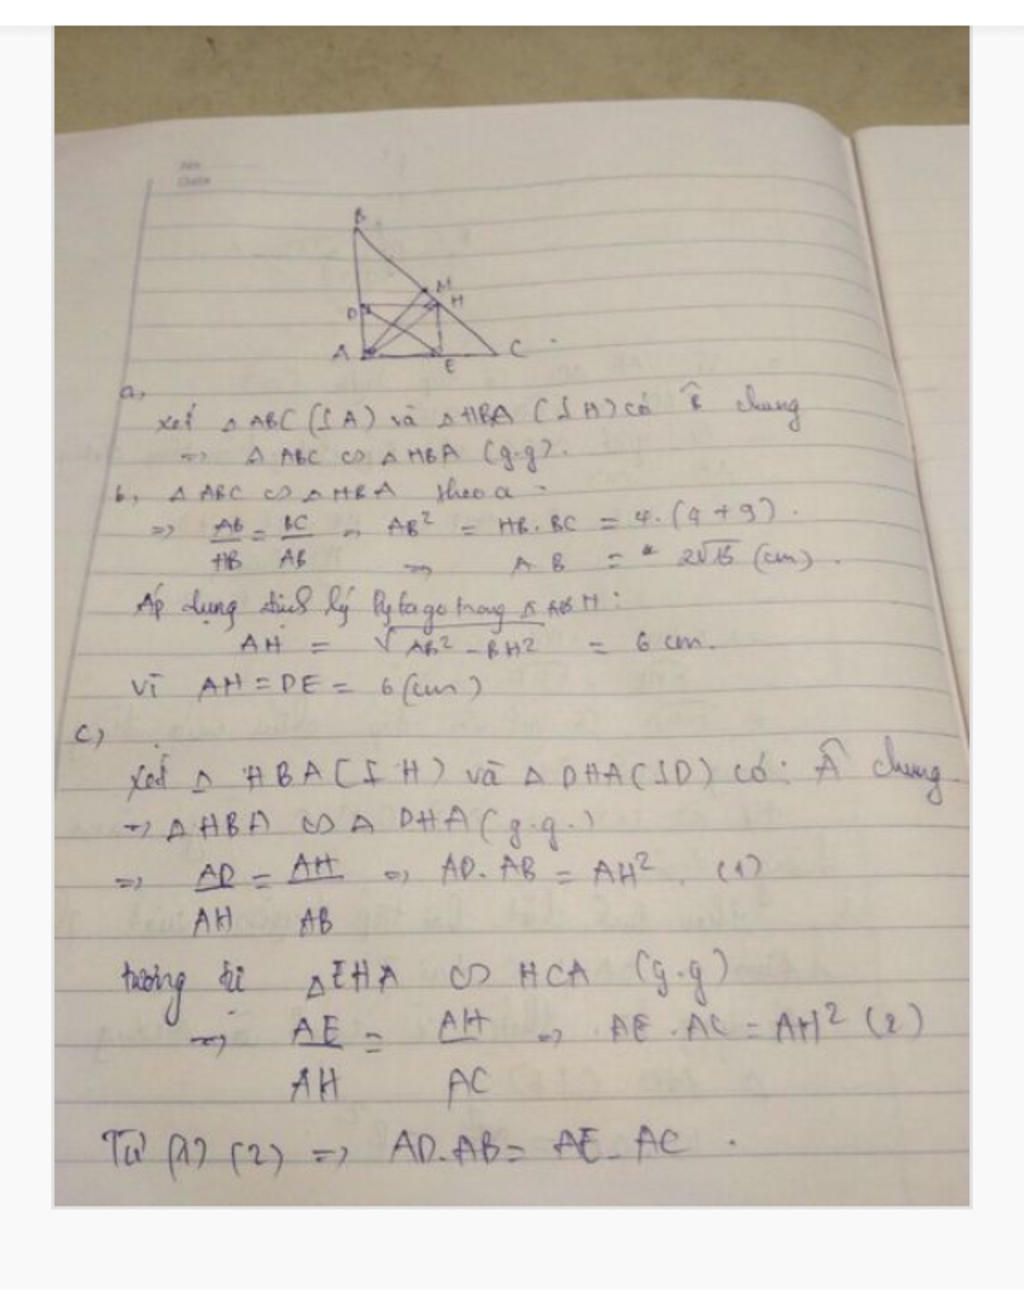 B
M
D
H
A
E
C
a,
xét Δ ABC (⊥ A) và Δ HBA (⊥ H) có B̂ chung
=> Δ ABC ∽ Δ HBA (g.g).
b, Δ ABC ∽ Δ HBA theo a
=> AB/HB = BC/AB => AB² = HB. BC = 4. (4 + 9).
=> AB = 2√13 (cm).
Áp dụng định lý Pytago trong Δ ABH:
AH = √AB² - BH² = 6 cm.
Vì AH = DE = 6 (cm)
c)
Xét Δ HBA (⊥ H) và Δ DHA (⊥ D) có: Â chung
=> Δ HBA ∽ Δ DHA (g.g.)
=> AD/AH = AH/AB => AD. AB = AH². (1)
tương tự Δ EHA ∽ HCA (g.g)
=> AE/AH = AH/AC => AE. AC = AH² (2)
Từ (1) (2) => AD. AB = AE. AC.